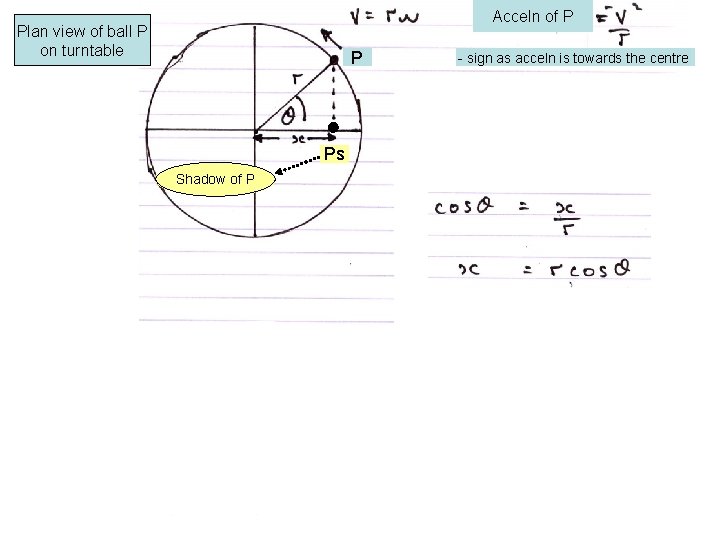 Plan view of ball P
on turntable
v = rω
Acceln of P = -v²/r
- sign as acceln is towards the centre
P
r
θ
x
Ps
Shadow of P
cosθ = x/r
x = r cosθ